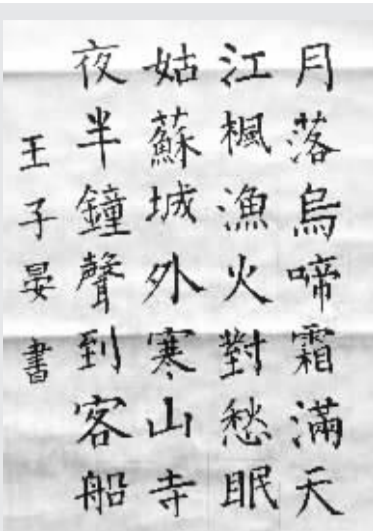 月落烏啼霜滿天
江楓漁火對愁眠
姑蘇城外寒山寺
夜半鐘聲到客船
王子晏書